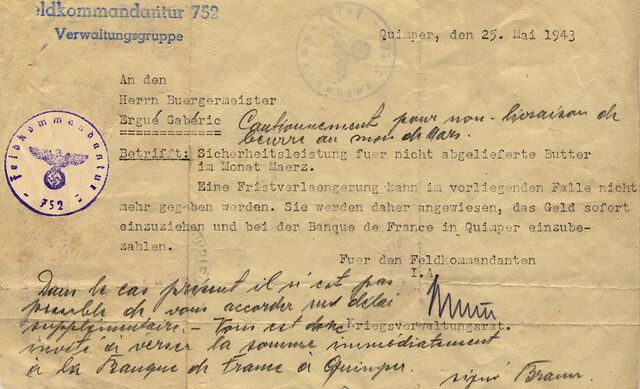 Feldkommandantur 752
Verwaltungsgruppe
Quimper, den 25. Mai 1943
An den
Herrn Buergermeister
Ergué Gabéric
Cautionnement pour non-livraison de
beurre au mois de Mars.
Feldkommandantur
752
Betrifft: Sicherheitsleistung fuer nicht abgelieferte Butter
im Monat Maerz.
Eine Fristverlaengerung kann im vorliegenden Falle nicht
mehr gegeben werden. Sie werden daher angewiesen, das Geld sofort
einzuziehen und bei der Banque de France in Quimper einzube-
zahlen.
Fuer den Feldkommandanten
I.A.
Kriegsverwaltungsrat.
Dans le cas présent il n'est pas
possible de vous accorder un délai
supplémentaire. - Vous est donc
invité à verser la somme immédiatement
à la Banque de France à Quimper.
signé Braun